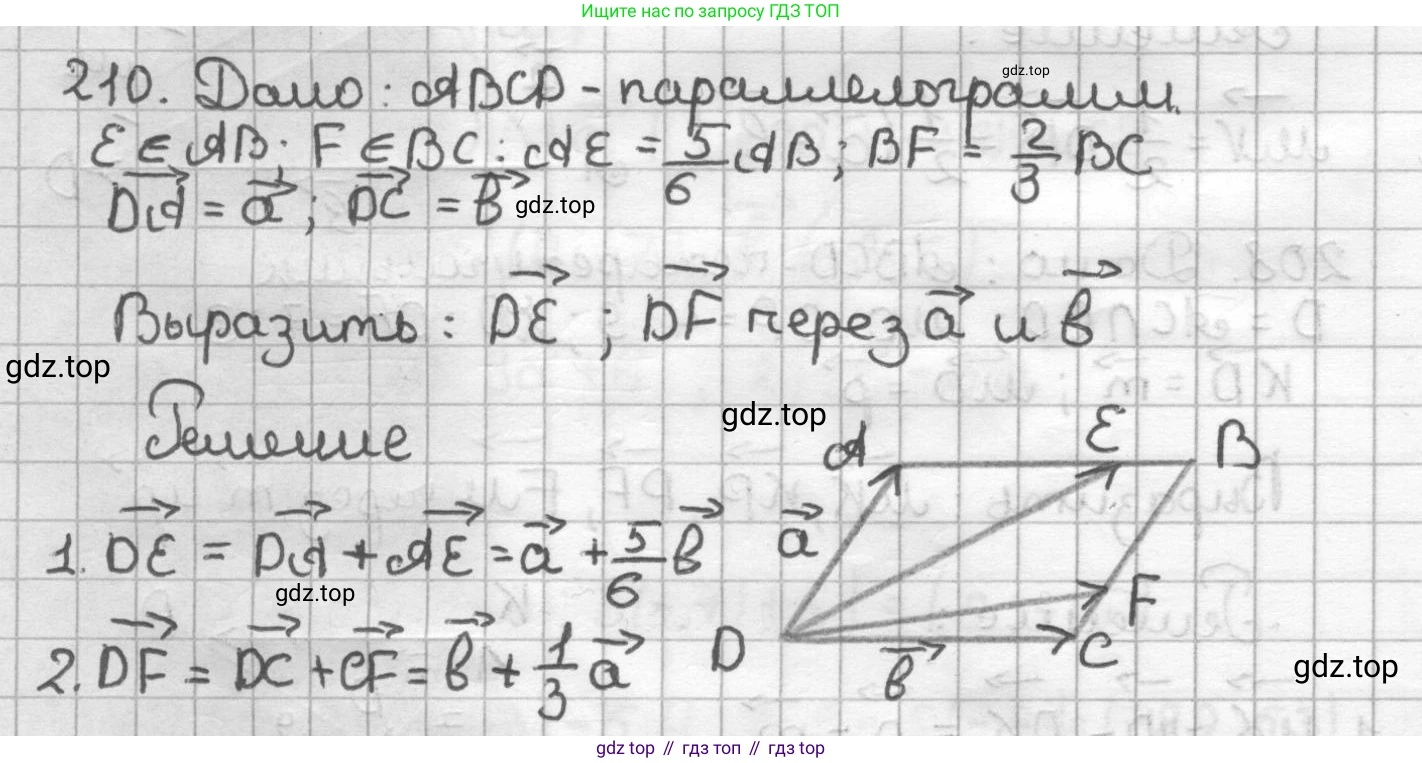 Ищите нас по запросу ГДЗ ТОП
210. Дано: ABCD - параллелограмм.
gdz.top
E ∈ AB; F ∈ BC: AE = 5/6 AB; BF = 2/3 BC
DA⃗ = a⃗; DC⃗ = b⃗
gdz.top
Выразить: DE⃗; DF⃗ через a⃗ и b⃗
gdz.top
Решение
gdz.top
A E B
1. DE⃗ = DA⃗ + AE⃗ = a⃗ + 5/6 b⃗
a⃗
gdz.top
F
2. DF⃗ = DC⃗ + CF⃗ = b⃗ + 1/3 a⃗
D C
b⃗
gdz.top
gdz top // гдз топ // гдз top